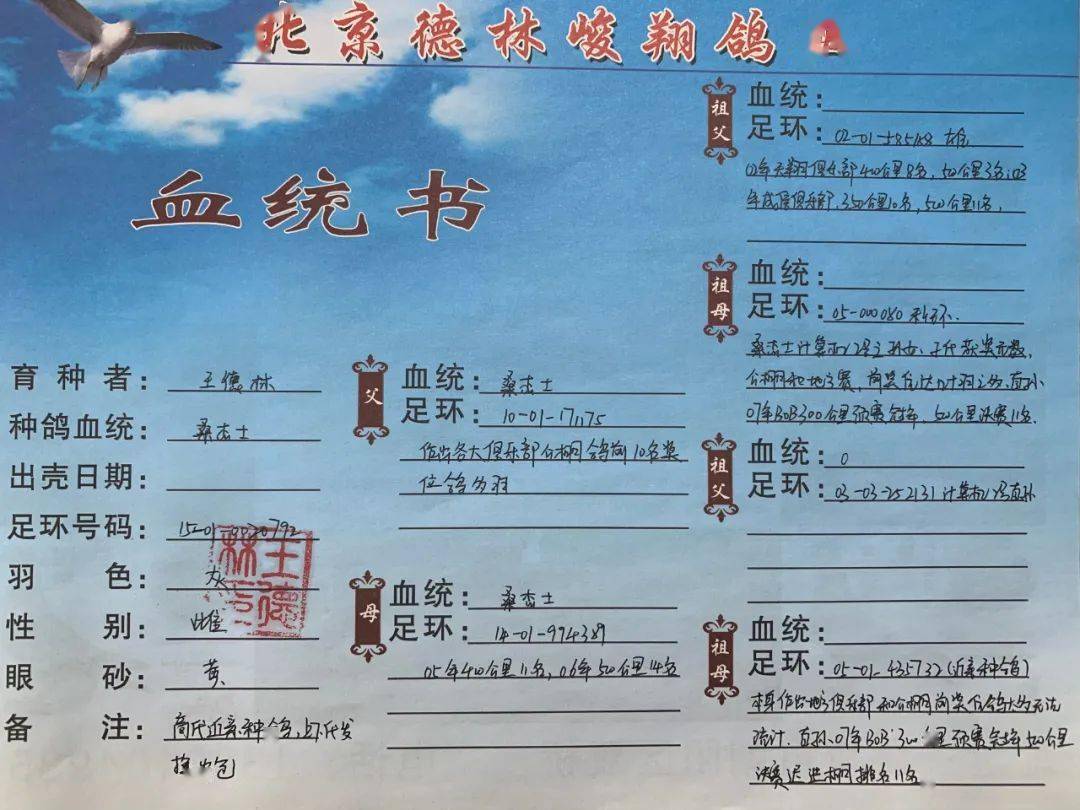 北京德林峻翔鸽
血统书
育种者：王德林
种鸽血统：桑杰士
出壳日期：
足环号码：15-01-0020792
羽色：灰
性别：雌
眼砂：黄
备注：高代近亲种鸽，
王德林
父
血统：桑杰士
足环：10-01-171175
作出各大俱乐部公棚鸽前10名奖
位鸽多羽
母
血统：桑杰士
足环：14-01-994389
05年400公里11名，06年500公里14名
祖父
血统：
足环：02-01-585188 雄
俱乐部400公里8名，500公里3名；03
俱乐部，350公里10名，500公里11名，
祖母
血统：
足环：05-000080
桑杰士计算机
公棚和地方赛，
07年BOB300公里预赛冠军，500公里决赛11名
祖父
血统：0
足环：03-03-252131 计算机
祖母
血统：
足环：05-01-435732（近亲种鸽）
本身作出地方俱乐部和公棚前奖位鸽太多无法
统计．直孙．07年BOB300公里预赛冠军500公里
决赛